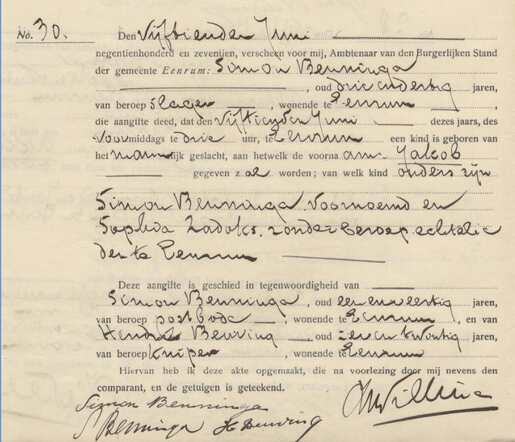 No. 30.
Den Vijftienden Juni
negentienhonderd en zeventien, verscheen voor mij, Ambtenaar van den Burgerlijken Stand
der gemeente Eenrum: Simon Benninga
, oud drie en dertig jaren,
van beroep slager, wonende te Eenrum,
die aangifte deed, dat den Vijftienden Juni dezes jaars, des
voormiddags te drie uur, te Eenrum een kind is geboren van
het mannelijk geslacht, aan hetwelk de voornaam: Jakob
gegeven zal worden; van welk kind ouders zijn
Simon Benninga voornoemd en
Sophia Zadoks, zonder beroep, echtelie
den te Eenrum
Deze aangifte is geschied in tegenwoordigheid van
Simon Benninga, oud een en veertig jaren,
van beroep postbode, wonende te Eenrum, en van
Beuving, oud zeven en twintig jaren,
van beroep kuiper, wonende te Eenrum
Hiervan heb ik deze akte opgemaakt, die na voorlezing door mij nevens den
comparant, en de getuigen is geteekend.
Simon Benninga
S Benninga H Beuving